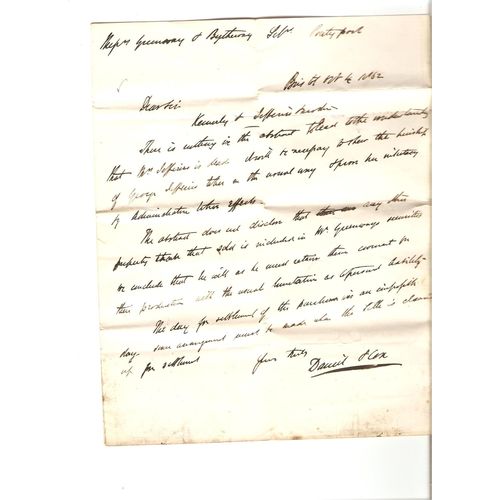 Messrs Greenway & Bytheway Solrs Pontypool
Bristol Oct 1862
Dear Sir
Kennerly & Jefferies
There is nothing in the abstract to lead to the
that Mr Jefferies is dead it will be necessary to show the heirship
of George Jefferies in the usual way & prove her intestacy
by Administration to her effects.
The abstract does not disclose that there are any other
property than that sold is included in Mr Greenways securities
we conclude that he will as he must retain them covenant for
their production with the usual limitation as to personal liability.
The day for settlement of the purchase is an impossible
day. some arrangement must be made when the title is cleared
up for settlement
Yours truly
Daniel & Cox